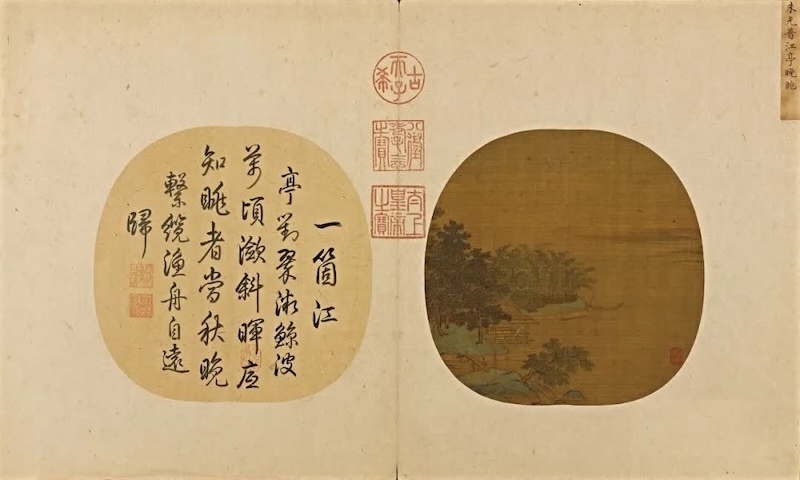 朱光普江亭晚眺
古希天子
八徵耄念之寶
太上皇帝之寶
一箇江
亭對翠微鯨波
萬頃瀲斜暉應
知眺者當秋晚
繫纜漁舟自遠
歸